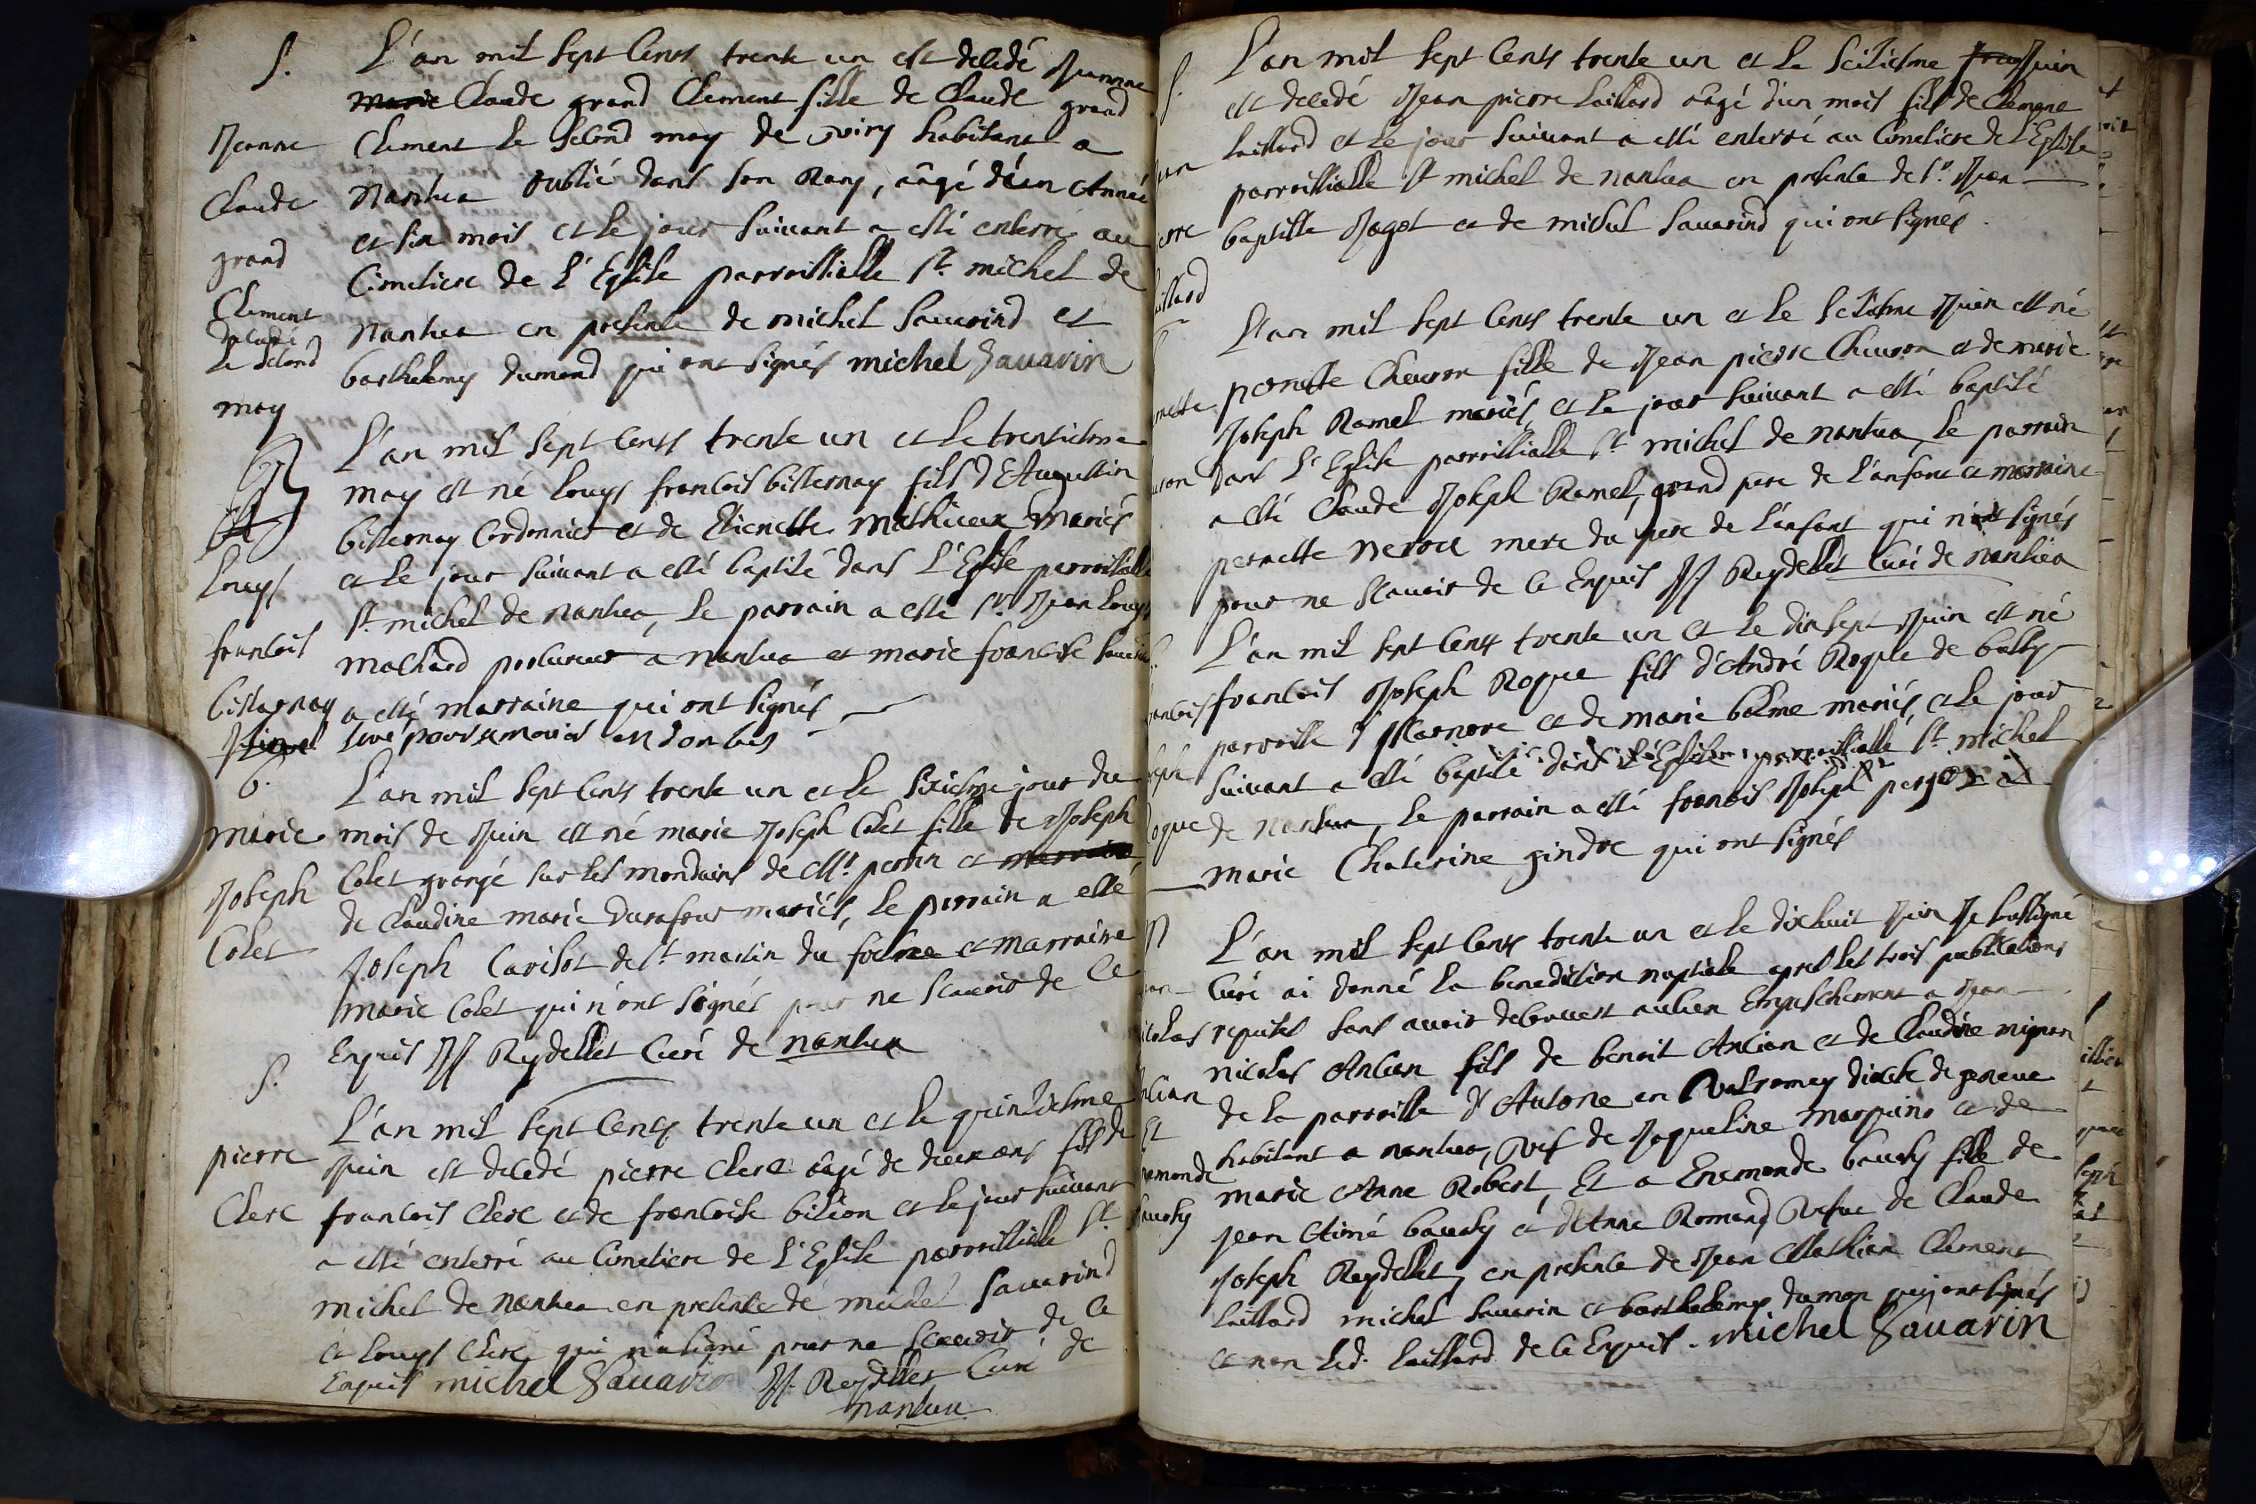 S.
Jeanne
Claude
grand
Clement
decedé
le second
may
L'an mil sept cents trente un est decedé Jeanne
Marie Claude grand Clement fille de Claude grand
Clement le second may de viry habitant a
Nantua oublié dans son Rang, aagé d'un Anneé
et six mois et le jour suivant a esté enterré au
Cimetiere de l'Eglise parroissialle St. michel de
Nantua en presence de michel Sauarind et
barthelemy dumond qui ont signés michel Sauarin
B
Louys
francois
bisternay
L'an mil sept cents trente un et le trentiesme
may est né Louys francois bisternay fils d'Augustin
bisternay Cordonnier et de Etienette Mathieux Mariés
et le jour suivant a esté baptisé dans l'Eglise parroissialle
St. michel de nantua, le parrain a esté Sr. Jean Louys
machard procureur a nantua et marie francoise
a esté marraine qui ont signés
B.
Marie
Joseph
Colet
L'an mil sept cents trente un et le sixiesme jour du
mois de Juin est né marie Joseph Colet fille de Joseph
Colet grangé sur les monduins de Mr. perrin et marraine
de Claudine marie durafour mariés, le parrain a esté
Joseph Carisot de St martin du fresne et marraine
marie Colet qui n'ont signés pour ne scavoir de ce
Enquis JJ Reydellet Curé de nantua
S.
pierre
Clerc
L'an mil sept cents trente un et le quinziesme
Juin est decedé pierre Clerc aagé de deux ans fils de
francois Clerc et de francoise bilion et le jour suivant
a esté enterré au Cimetiere de l'Eglise parroissialle St.
michel de nantua en presence de michel Sauarind
et Louys Clerc qui n'a signé pour ne scavoir de ce
Enquis michel Sauarin JJ. Reydellet Curé de
nantua
S.
L'an mil sept cents trente un et le seiziesme Juin
est decedé Jean pierre Laillard aagé d'un mois fils de Clemene
Laillard et le jour suivant a esté enterré au Cimetiere de l'Eglise
parroissialle St michel de nantua en presence de Sr. Jean
baptiste Jagot et de michel Sauarind qui ont signés.
L'an mil sept cents trente un et le seiziesme Juin est né
pernette Cheuron fille de Jean pierre Cheuron et de marie
Joseph Ramel mariés, et le jour suivant a esté baptisé
dans l'Eglise parroissialle St. michel de nantua, le parrain
a esté Claude Joseph Ramel, grand pere de l'anfant et marraine
pernette neroce mere du pere de l'anfant qui n'ont signés
pour ne scavoir de ce Enquis JJ Reydellet Curé de nantua
L'an mil sept cents trente un et le dix sept Juin est né
francois Joseph Roque fils d'André Roque de
parroisse d' Marnore et de marie balme mariés, et le jour
suivant a esté baptisé dans l'Eglise parroissialle St michel
de nantua, le parrain a esté francois Joseph
marie Chaterine gindre qui ont signés
L'an mil sept cents trente un et le dixhuit Juin Je soussigné
Curé ai donné la benediction nuptiale apres les trois publications
requises sans avoir decouvert aulcun Empeschement a Jean
nicolas Ancian fils de benoit Ancian et de Claudine mignon
de la parroisse d' Autone en Valromey diocese de geneve
habitant a nantua, vef de Jaqueline marquino et de
marie Anne Robert, Et a Enemonde baudy fille de
Jean Aimé baudy et d'Anne Romand vefve de Claude
Joseph Reydellet, en presence de Jean Mathieu Clement
Laillard michel Sauarin et barthelemy dumon qui ont signés
et non led. Laillard de ce Enquis. michel Sauarin